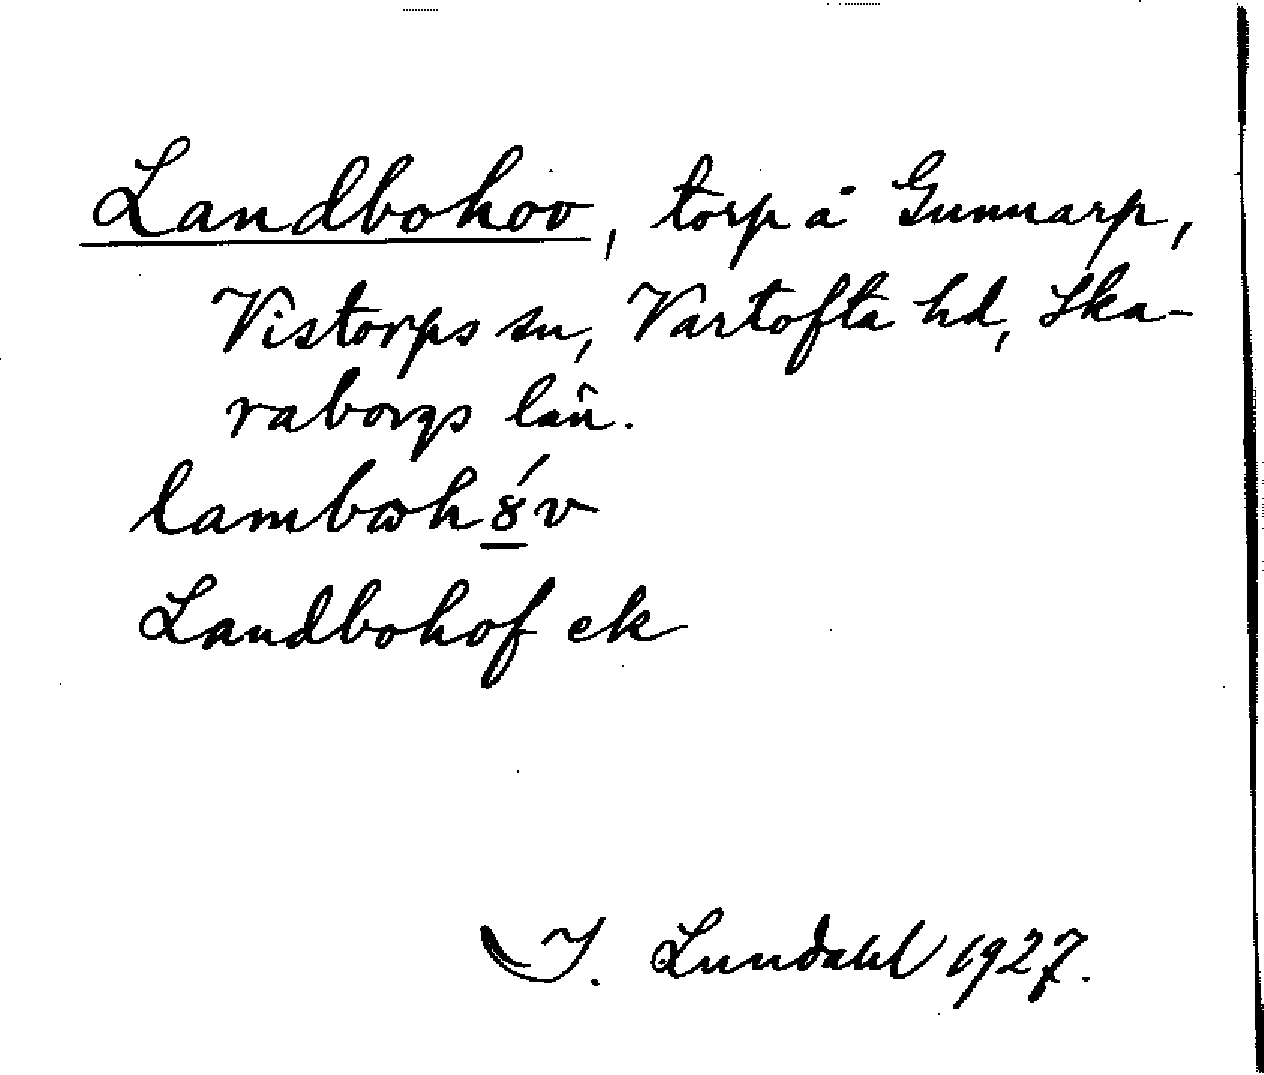 Landbohov, torp å Gunnarp,
Vistorps sn, Vartofta hd, Ska-
raborgs län.
lambωh8́v
Landbohof ek
I. Lundahl 1927.